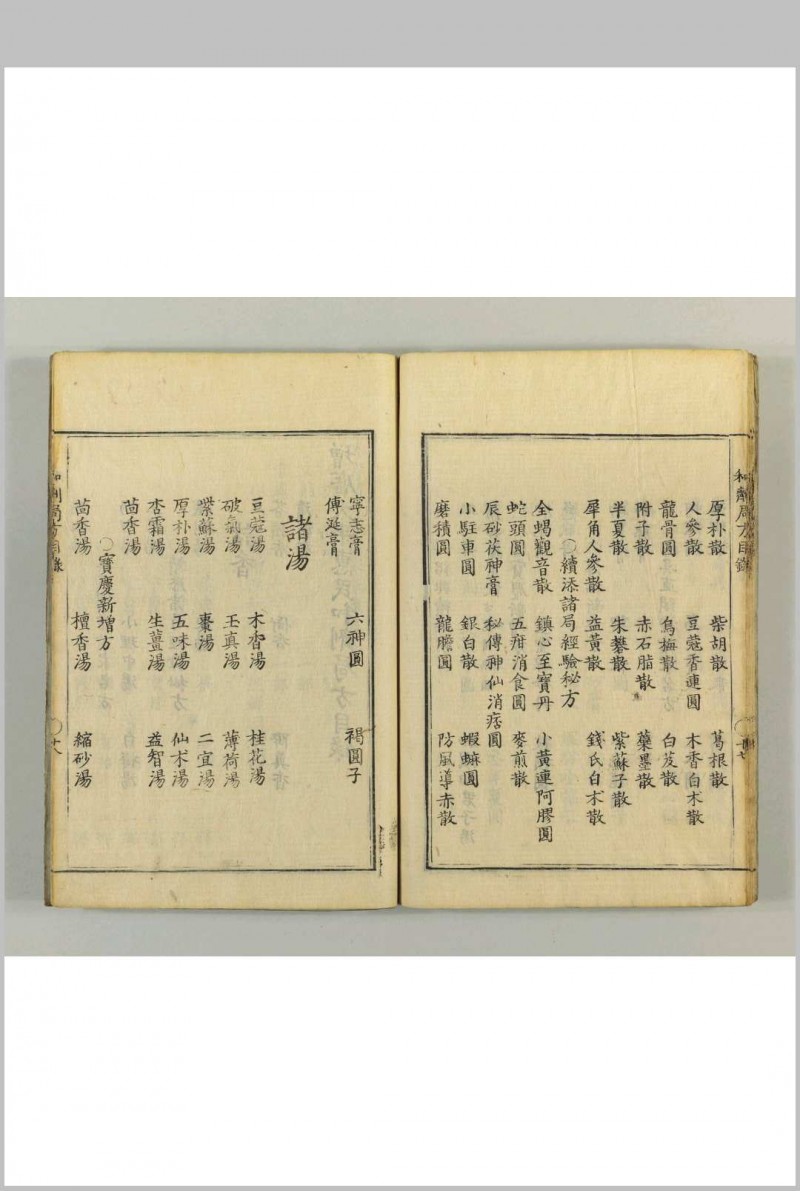 和劑局方目錄
厚朴散 柴胡散 葛根散
人參散 豆蔻香連圓 木香白朮散
龍骨圓 烏梅散 白芨散
附子散 赤石脂散 藥墨散
半夏散 朱礬散 紫蘇子散
犀角人參散 益黃散 錢氏白朮散
○續添諸局經驗秘方
全蝎觀音散 鎮心至寶丹 小黃連阿膠圓
蛇頭圓 五疳消食圓 麥煎散
辰砂茯神膏 秘傳神仙消痞圓
小駐車圓 銀白散 蝦蟆圓
磨積圓 龍膽圓 防風導赤散
寧志膏 六神圓 褐圓子
傅涎膏
諸湯
豆蔻湯 木香湯 桂花湯
破氣湯 玉真湯 薄荷湯
紫蘇湯 棗湯 二宜湯
厚朴湯 五味湯 仙朮湯
杏霜湯 生薑湯 益智湯
茴香湯
○寶慶新增方
茴香湯 檀香湯 縮砂湯
和劑局方目錄